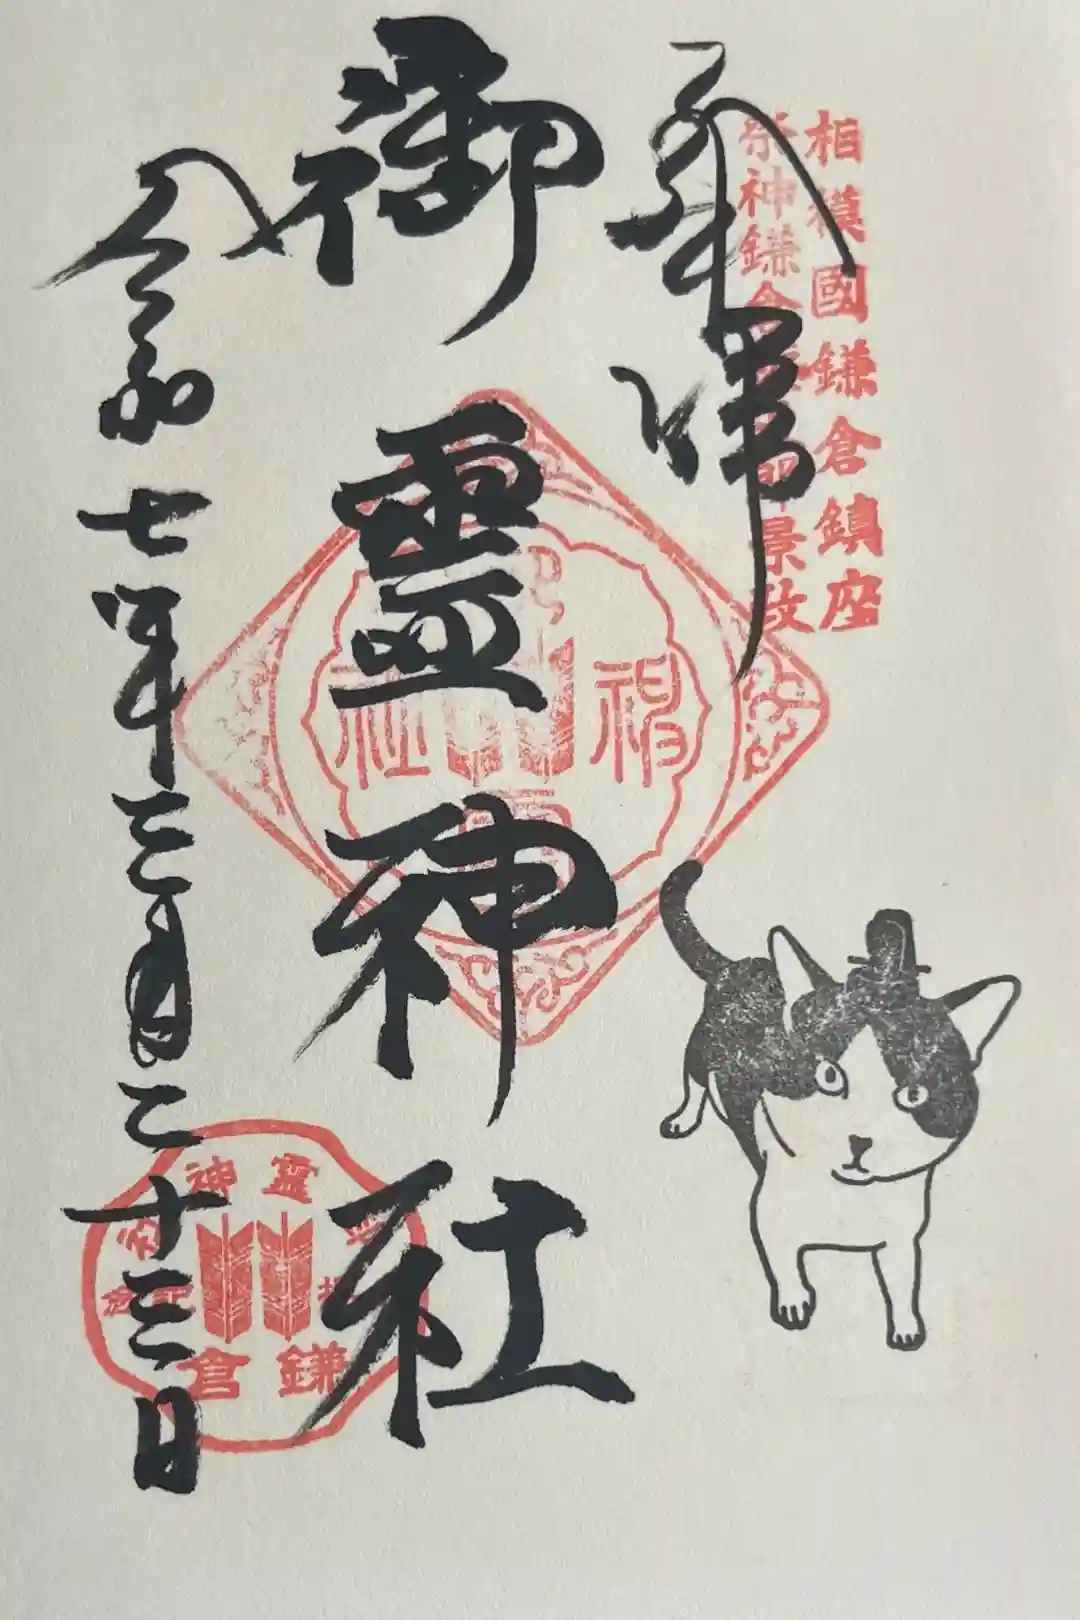 相模國鎌倉鎮座
祭神鎌倉権五郎景政
奉拝
御霊神社
令和七年三月二十三日
神
社
霊神
鎌倉